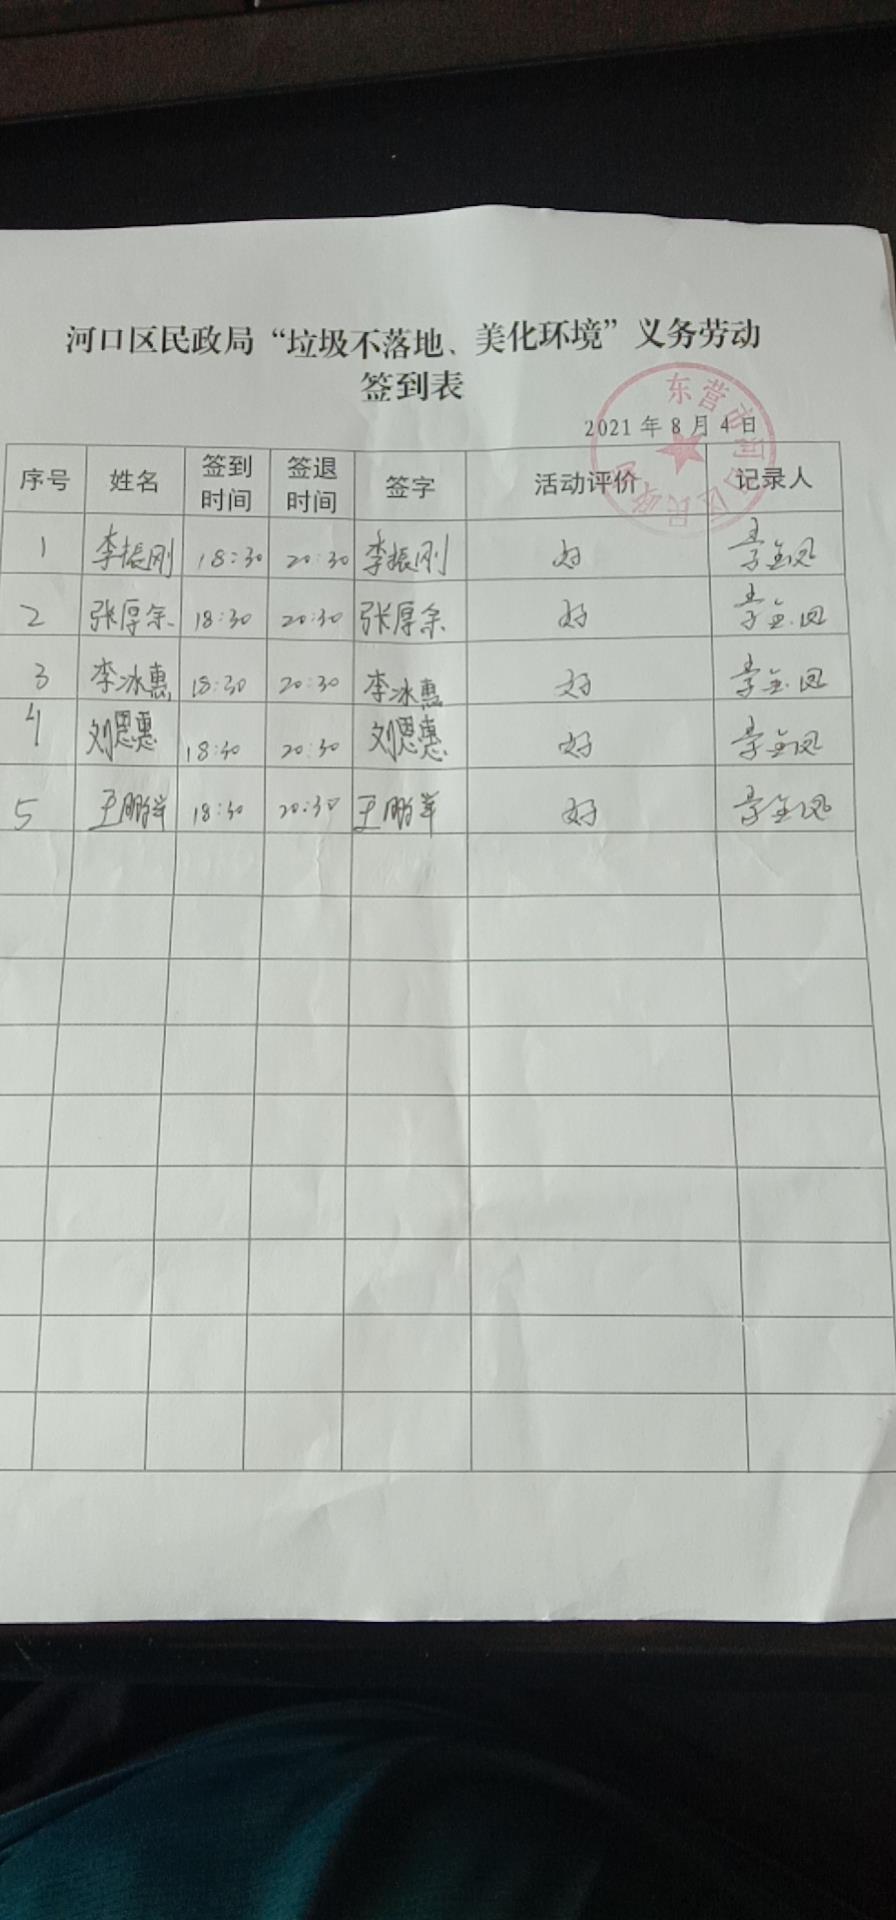 河口区民政局“垃圾不落地、美化环境”义务劳动
签到表
东营市河口区民政局
2021年8月4日
序号 姓名 签到时间 签退时间 签字 活动评价 记录人
1 李振刚 18:30 20:30 李振刚 好
2 张厚余 18:30 20:30 张厚余 好
3 李冰惠 18:30 20:30 李冰惠 好
4 刘恩惠 18:30 20:30 刘恩惠 好
5 王鹏 18:30 20:30 王鹏 好